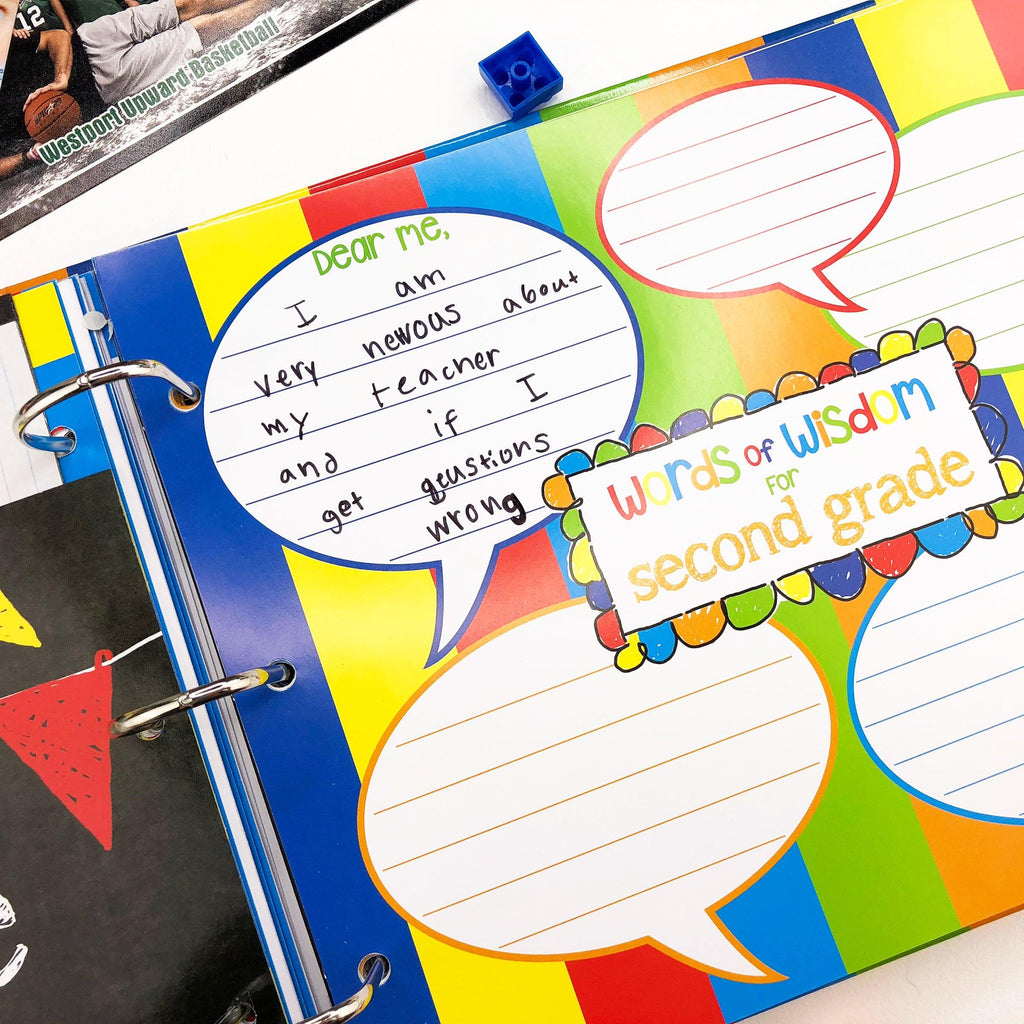 12
Westport Upward Basketball
Dear me,
I am
very nervous about
my teacher
and if I
get qeustions
wrong
Words of Wisdom
FOR
second grade